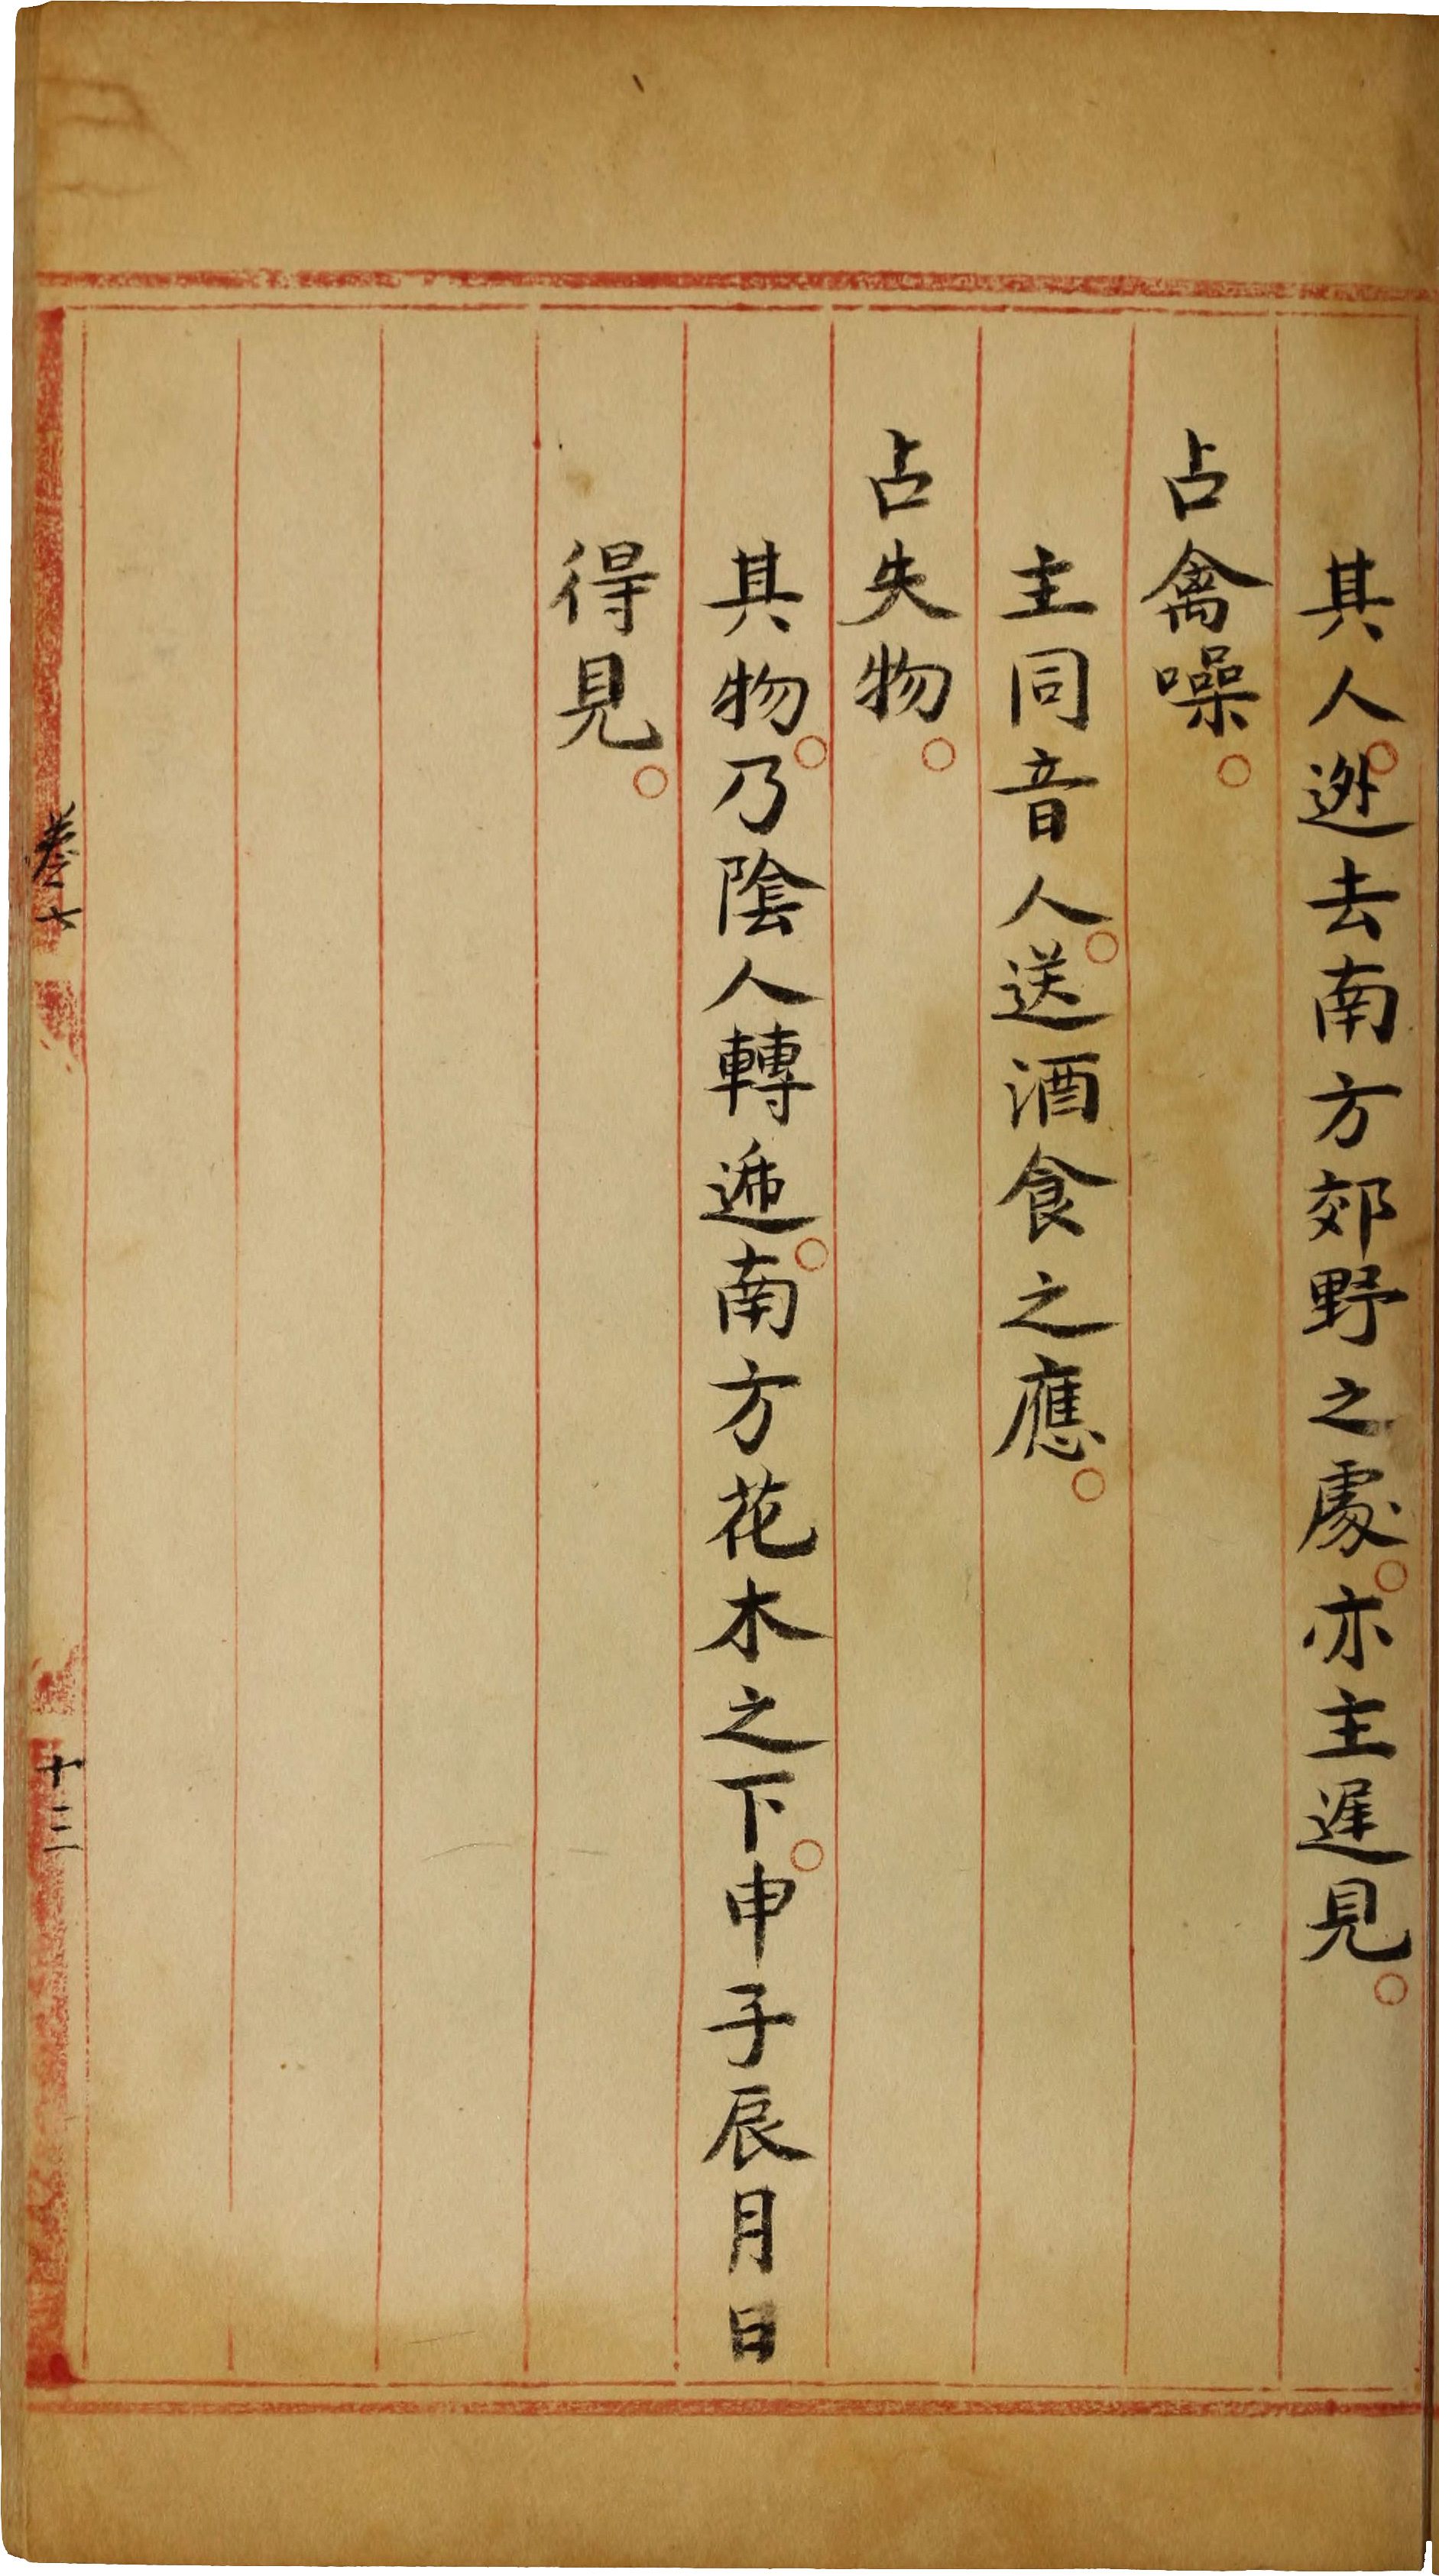 其人。逃去南方郊野之處。亦主遲見。
占禽噪。
主同音人。送酒食之應。
占失物。
其物。乃陰人轉遞。南方花木之下。申子辰月日
得見。
卷六
十三